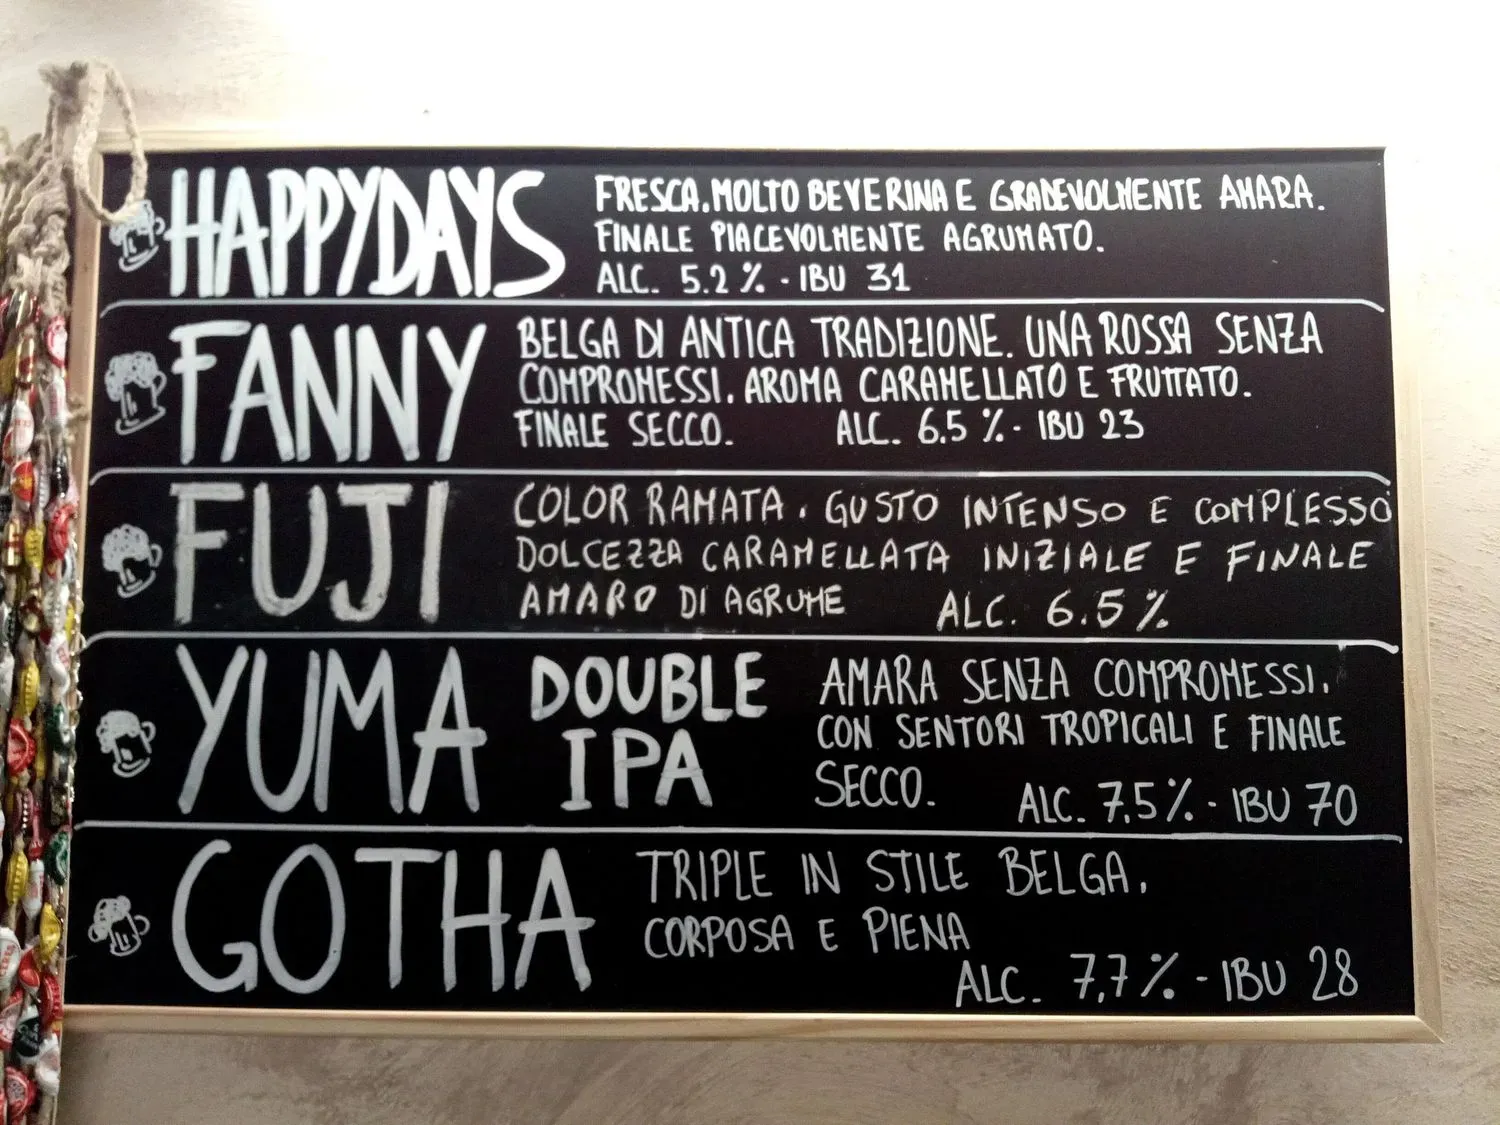 HAPPYDAYS
FRESCA. MOLTO BEVERINA E GRADEVOLMENTE AMARA.
FINALE PIACEVOLMENTE AGRUMATO.
ALC. 5.2 % - IBU 31
FANNY
BELGA DI ANTICA TRADIZIONE. UNA ROSSA SENZA
COMPROMESSI. AROMA CARAMELLATO E FRUTTATO.
FINALE SECCO. ALC. 6.5 % - IBU 23
FUJI
COLOR RAMATA. GUSTO INTENSO E COMPLESSO
DOLCEZZA CARAMELLATA INIZIALE E FINALE
AMARO DI AGRUME ALC. 6.5 %
YUMA DOUBLE
IPA
AMARA SENZA COMPROMESSI.
CON SENTORI TROPICALI E FINALE
SECCO.
ALC. 7,5 % - IBU 70
GOTHA
TRIPLE IN STILE BELGA.
CORPOSA E PIENA
ALC. 7,7 % - IBU 28